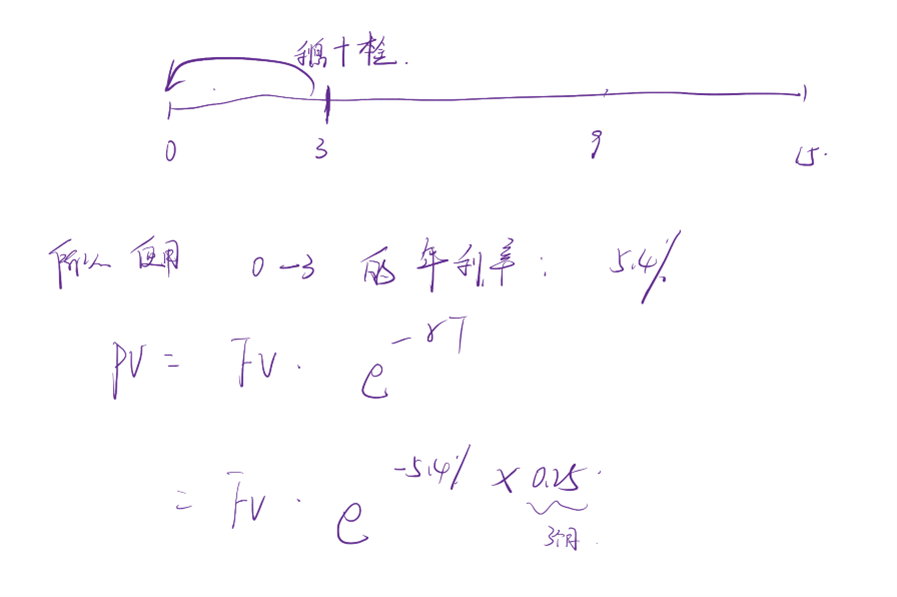 利息+本金.
0 3 9 15.
所以 使用 0-3 的 年利率: 5.4%
PV = FV · e^{-rT}
= FV · e^{-5.4% × 0.25}
3个月.